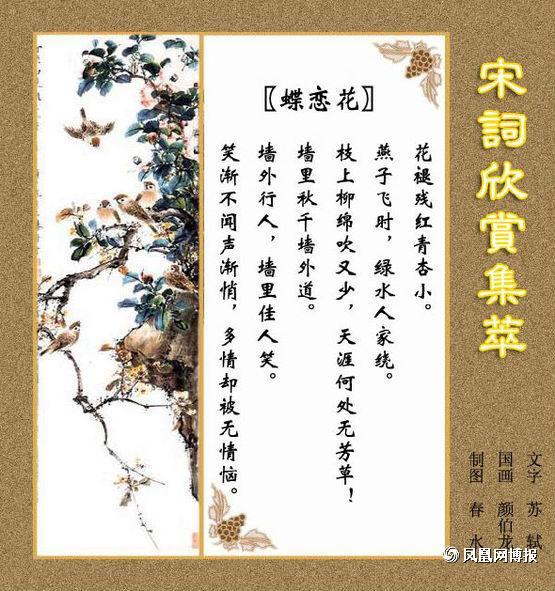 宋詞欣賞集萃
〖蝶恋花〗
花褪残红青杏小。
燕子飞时，绿水人家绕。
枝上柳绵吹又少，天涯何处无芳草！
墙里秋千墙外道。
墙外行人，墙里佳人笑。
笑渐不闻声渐悄，多情却被无情恼。
文字 苏轼
国画 颜伯龙
制图 春水
凤凰网博报